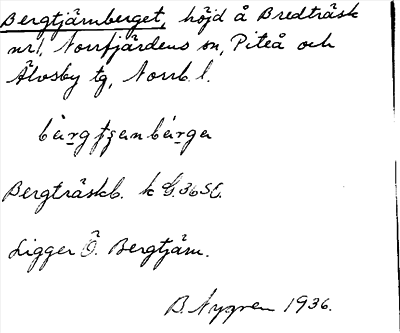 Bergtjärnberget, höjd å Bredträsk
nr 1, Norrfjärdens sn, Piteå och
Älvsby tg, Norrb. l.
Bergträskb. k G.36SE.
Ligger Ö. Bergtjärn.
B. Nygren 1936.